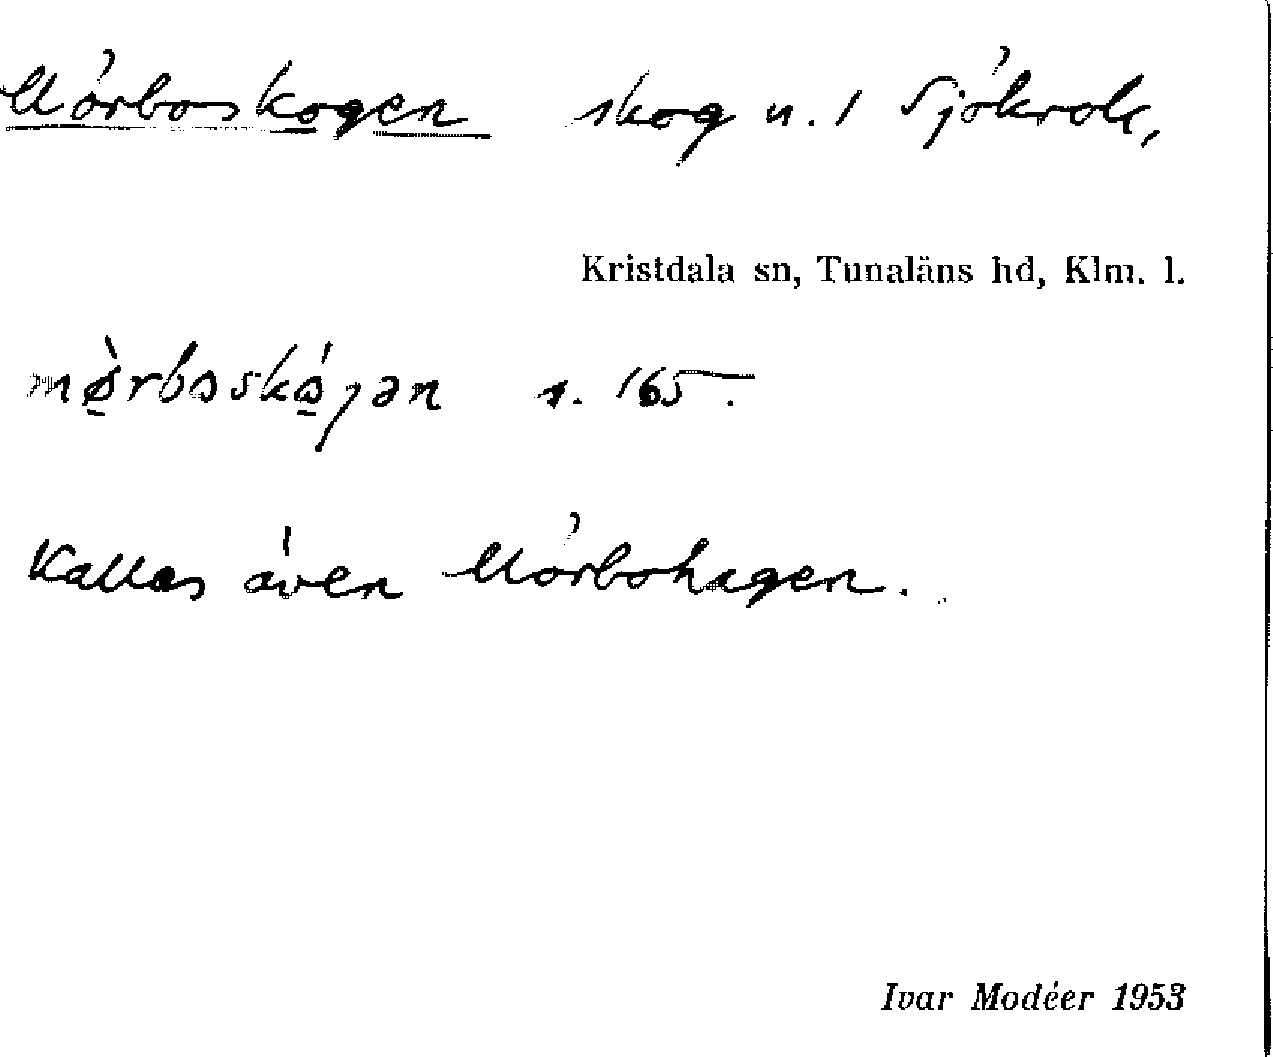 Mörboskogen skog u. 1 Sjökrok,
Kristdala sn, Tunaläns hd, Klm. l.
mø̀rboskó̱gən s. 165.
Kallas även Mörbohagen.
Ivar Modéer 1953